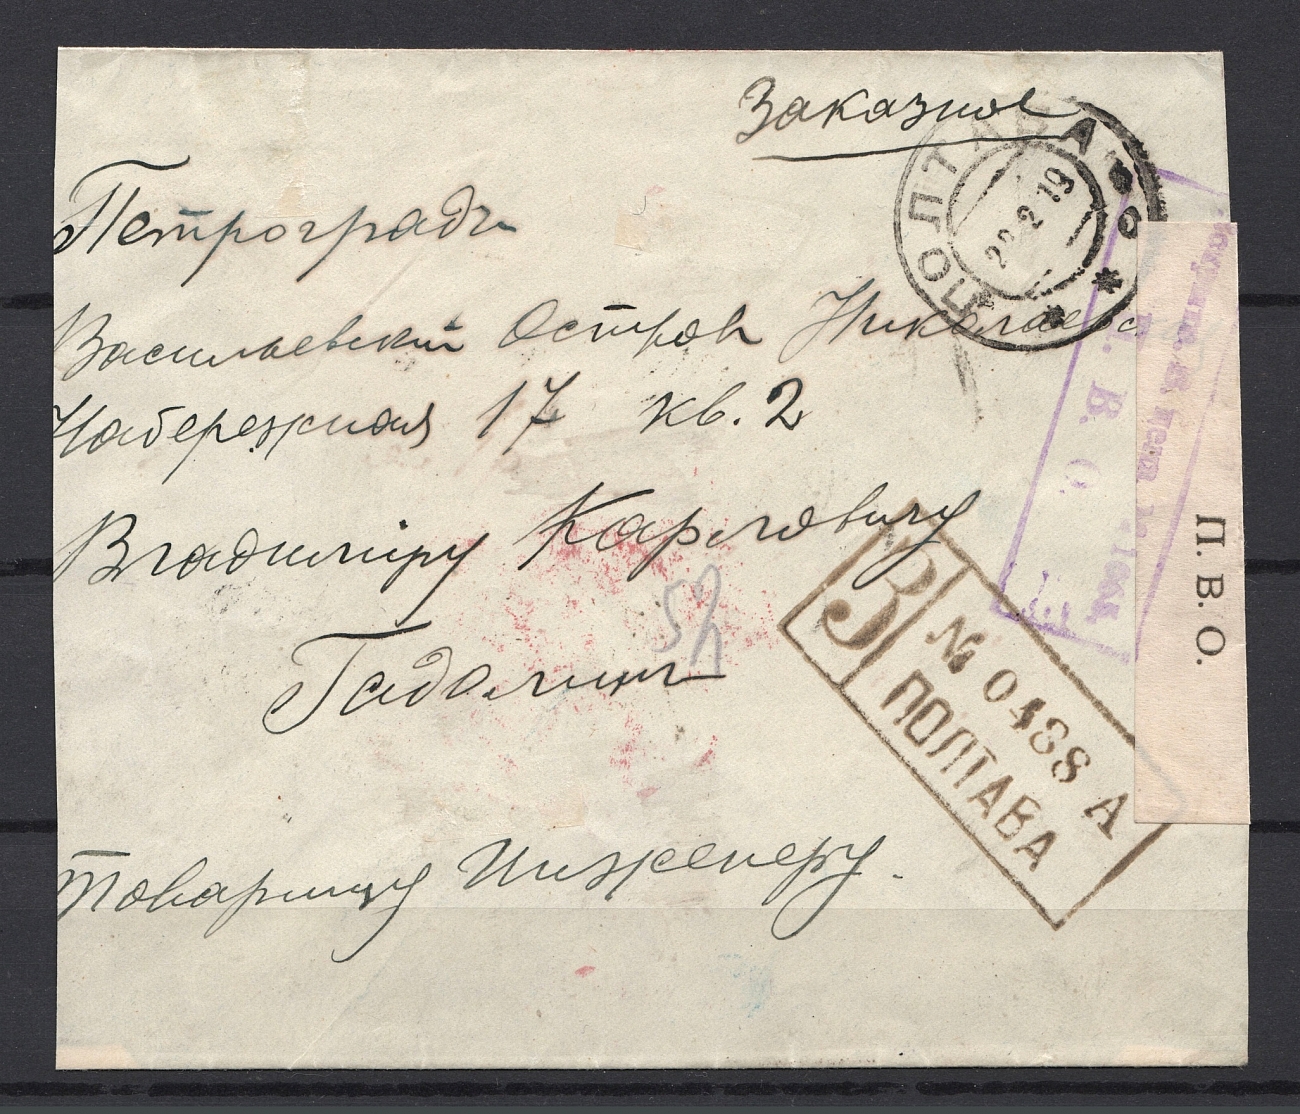 Заказное
Петроградъ
Васильевский Остров Николаевс
Набережная 17 кв. 2
Владимиру Карловичу
Гадолин
Товарищу Инженеру.
ПОЛТАВА
22 2 19
З
№ 0488 А
ПОЛТАВА
П. В. О.
П. В. О.